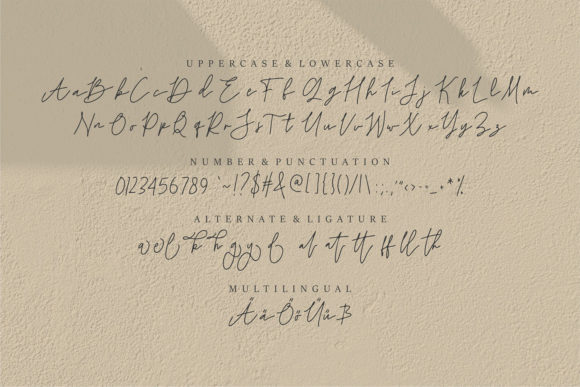 UPPERCASE & LOWERCASE
A a B b C c D d E e F f G g H h I i J j K k L l M m
N n O o P p Q q R r S s T t U u V v W w X x Y y Z z
NUMBER & PUNCTUATION
0123456789 `~!?$#&@[]{}()/|\:;.,'"<>-=_+*%
ALTERNATE & LIGATURE
al at tt ff ll th
MULTILINGUAL
Ä ä Ö ö Ü ü ß